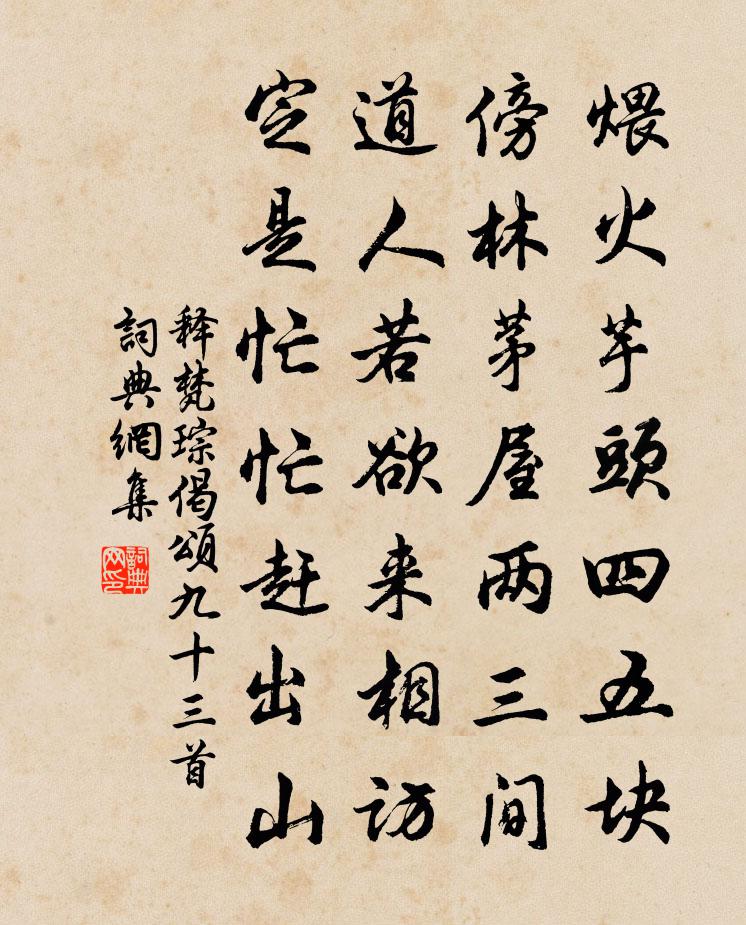 煨火芋頭四五块
傍林茅屋两三间
道人若欲来相访
定是忙忙赶出山
释梵琮偈頌九十三首
詞典網集
詞典网印